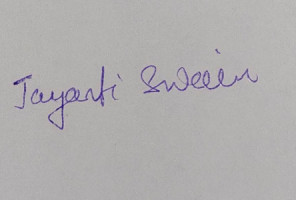 Jayanti Swain